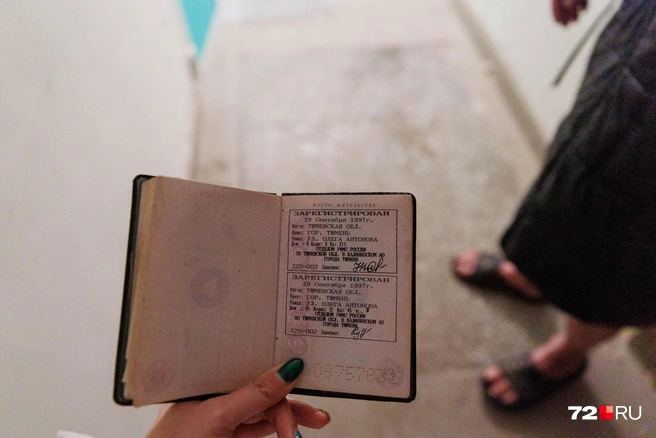 МЕСТО ЖИТЕЛЬСТВА
ЗАРЕГИСТРИРОВАН
29 Сентября 1997г.
ТЮМЕНСКАЯ ОБЛ.
ГОР. ТЮМЕНЬ
УЛ. ОЛЕГА АНТОНОВА
ОТДЕЛОМ УФМС РОССИИ
ПО ТЮМЕНСКОЙ ОБЛ. В КАЛИНИНСКОМ АО
ГОРОДА ТЮМЕНИ
720-002 Заверил:
ЗАРЕГИСТРИРОВАН
29 Сентября 1997г.
ТЮМЕНСКАЯ ОБЛ.
ГОР. ТЮМЕНЬ
УЛ. ОЛЕГА АНТОНОВА
ОТДЕЛОМ УФМС РОССИИ
ПО ТЮМЕНСКОЙ ОБЛ. В КАЛИНИНСКОМ АО
ГОРОДА ТЮМЕНИ
720-002 Заверил:
72.RU